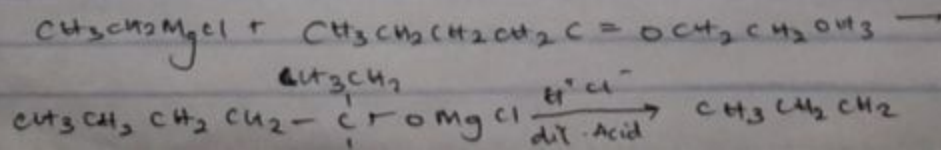 CH3CH2MgCl + CH3CH2CH2CH2C = OCH2CH2OH3 →
CH3CH2
CH3CH2CH2CH2 - C - OMgCl H+Cl- dil. Acid → CH3CH2CH2